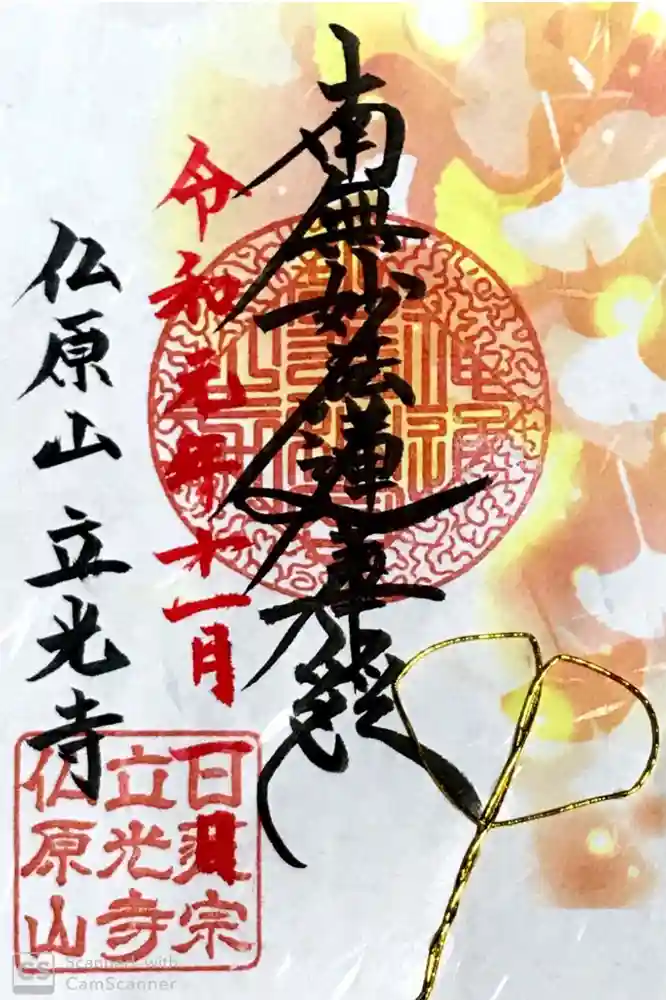 南無妙法蓮華経
令和元年十一月一日
仏原山 立光寺
日蓮宗
立光寺
仏原山
CS Scanned with
CamScanner